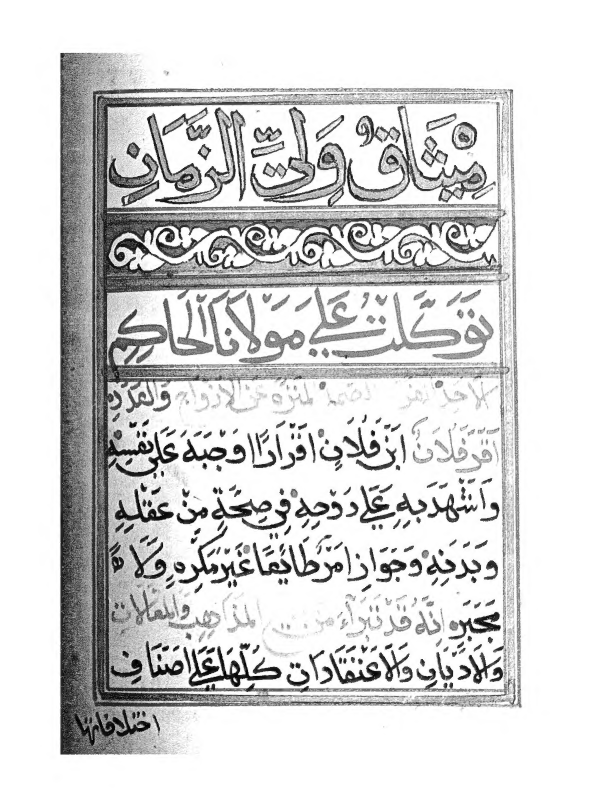 مِيْثَاقُ وَلِيِّ الزَّمَانِ
تَوَكَّلتُ عَلَى مَوْلَانَا الْحَاكِمِ
الاحد الفرد الصمد المنزه عن الازواج والعدد
اقرَّ فلان ابن فلان اقرارًا اوجبه على نفسه
واشهد به على روحه في صحة من عقله
وبدنه وجواز امر طائعًا غير مكره ولا
مجبر انه قد تبراء من المذاهب والمقالات
والاديان والاعتقادات كلها على اصناف
اختلافاتها